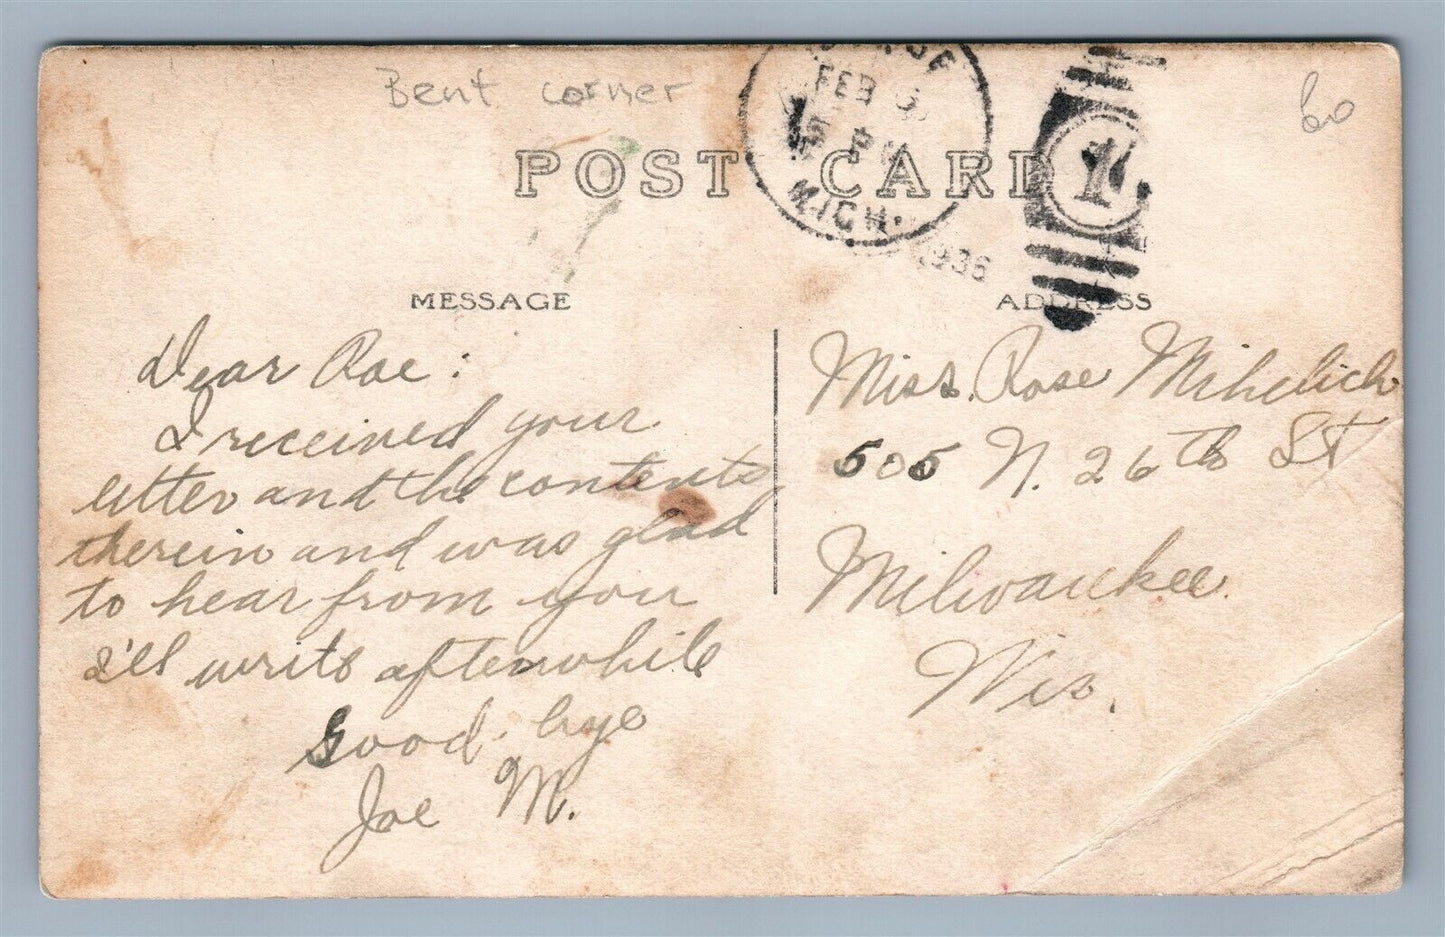 Bent corner
60
POST CARD
FEB 6
PM
MICH.
1936
1
MESSAGE
ADDRESS
Dear Roe:
I received your
letter and the contents
therein and was glad
to hear from you
I'll write afterwhile
Good-bye
Joe M.
Miss. Rose Mihelich
505 N. 26th St
Milwaukee
Wis.